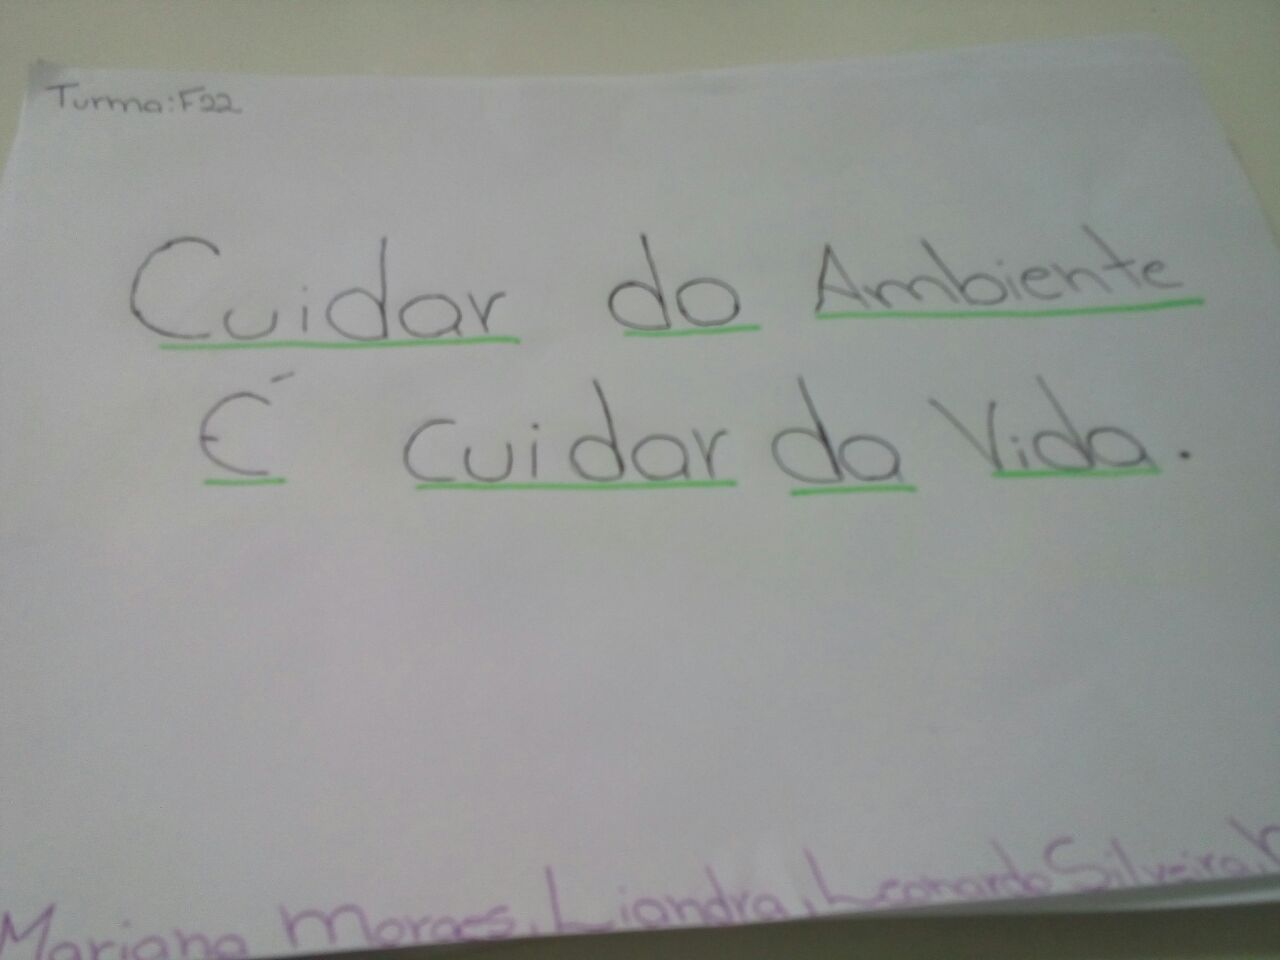 Turma: F22
Cuidar do Ambiente
É Cuidar da Vida.
Mariana Moraes, Liandra, Leonardo Silveira,